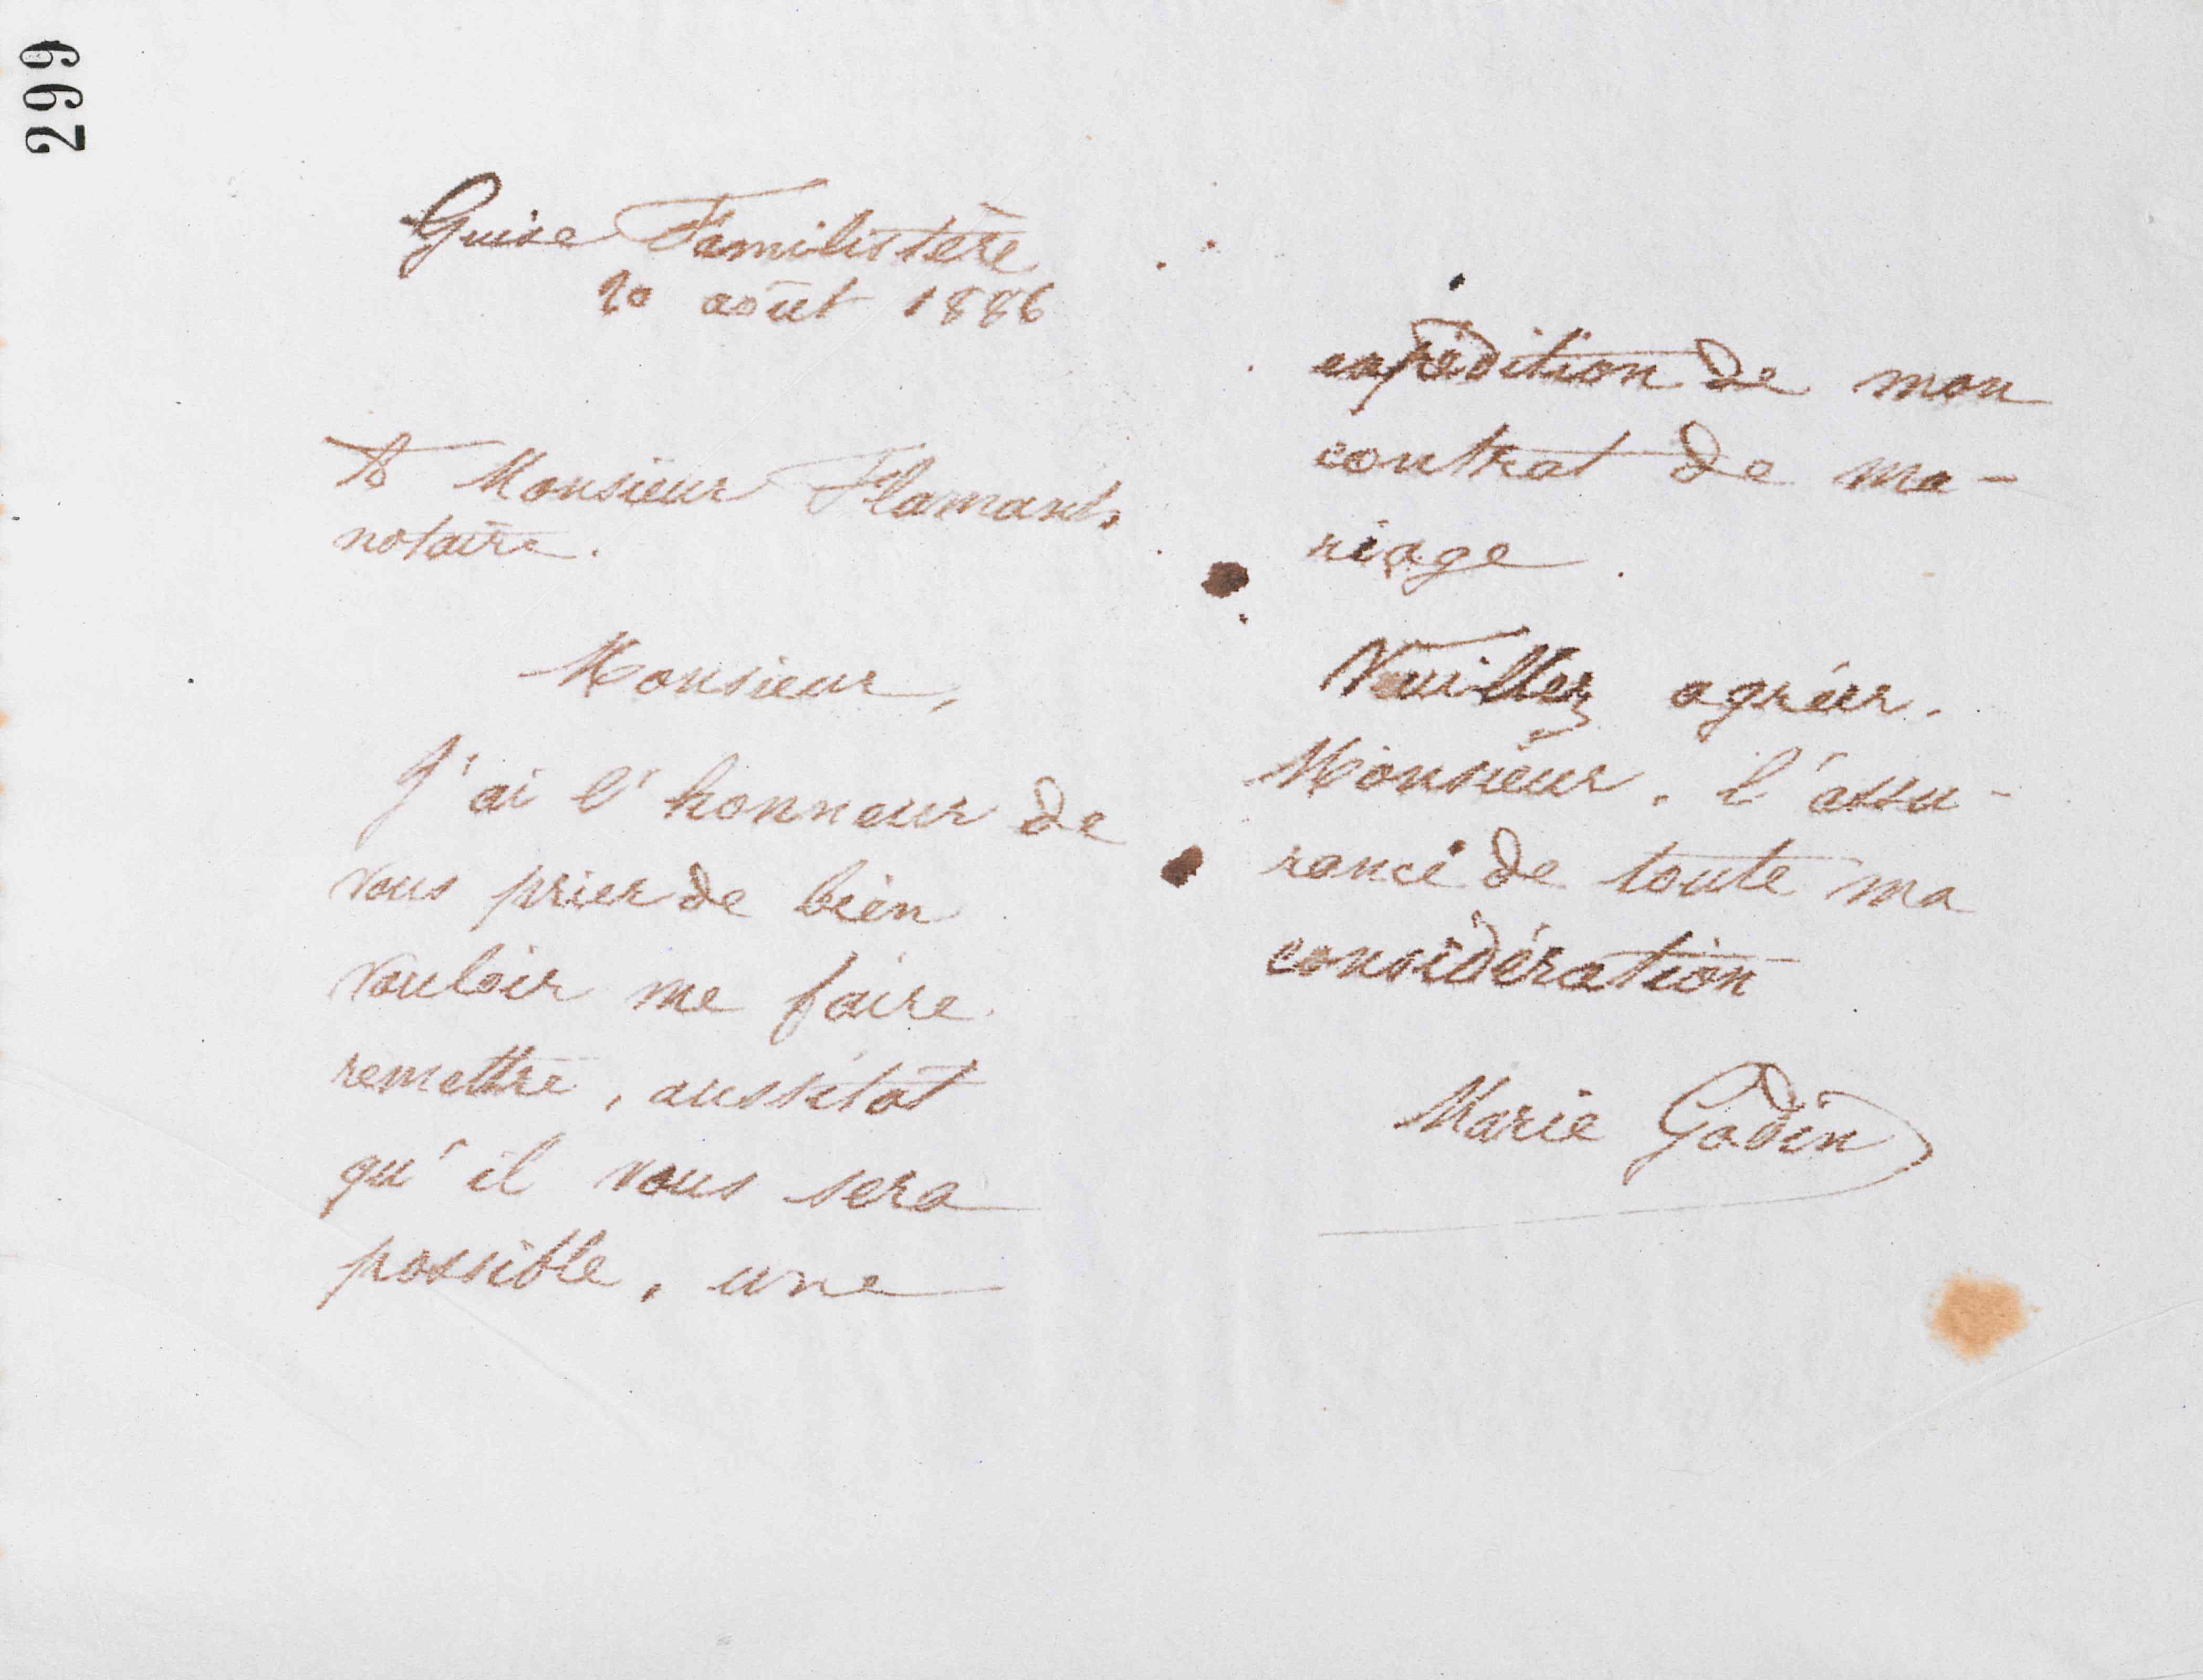 299
Guise Familistère
20 août 1886
À Monsieur Flamant,
notaire.
Monsieur,
J'ai l'honneur de
vous prier de bien
vouloir me faire
remettre, aussitôt
qu'il vous sera
possible, une
expédition de mon
contrat de ma-
riage.
Veuillez agréer,
Monsieur, l'assu-
rance de toute ma
considération
Marie Godin